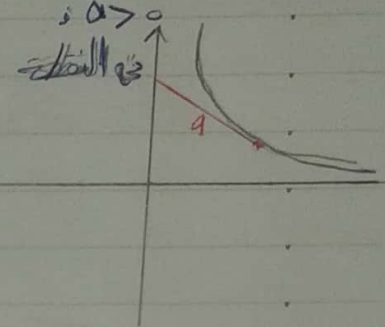 ; a > 0
في النقطة
a